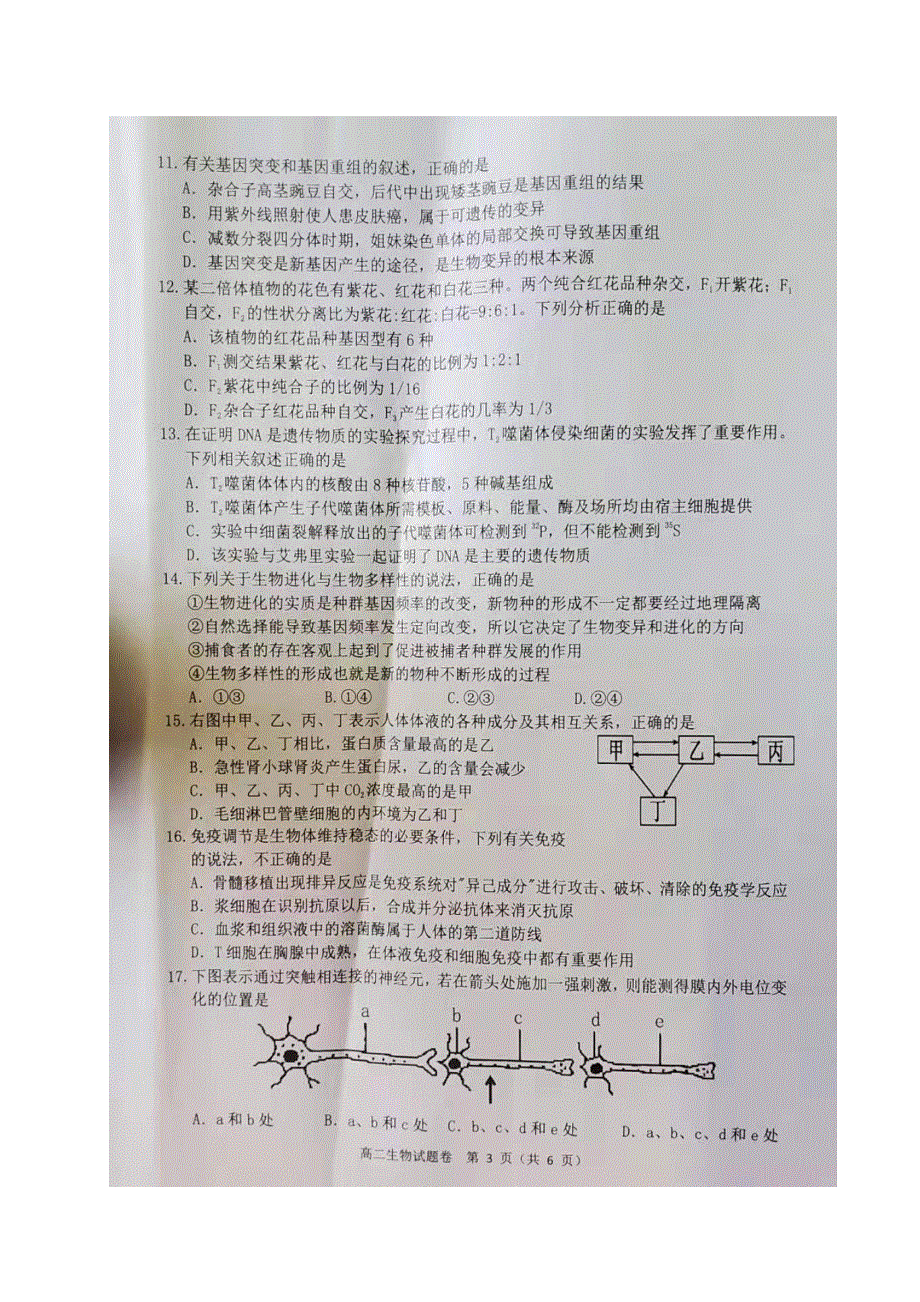 11. 有关基因突变和基因重组的叙述，正确的是
A. 杂合子高茎豌豆自交，后代中出现矮茎豌豆是基因重组的结果
B. 用紫外线照射使人患皮肤癌，属于可遗传的变异
C. 减数分裂四分体时期，姐妹染色单体的局部交换可导致基因重组
D. 基因突变是新基因产生的途径，是生物变异的根本来源
12. 某二倍体植物的花色有紫花、红花和白花三种。两个纯合红花品种杂交，F₁开紫花；F₁
自交，F₂的性状分离比为紫花:红花:白花=9:6:1。下列分析正确的是
A. 该植物的红花品种基因型有 6 种
B. F₁测交结果紫花、红花与白花的比例为 1:2:1
C. F₂紫花中纯合子的比例为 1/16
D. F₂杂合子红花品种自交，F₃产生白花的几率为 1/3
13. 在证明 DNA 是遗传物质的实验探究过程中，T₂噬菌体侵染细菌的实验发挥了重要作用。
下列相关叙述正确的是
A. T₂噬菌体体内的核酸由 8 种核苷酸，5 种碱基组成
B. T₂噬菌体产生子代噬菌体所需模板、原料、能量、酶及场所均由宿主细胞提供
C. 实验中细菌裂解释放出的子代噬菌体可检测到 ³²P，但不能检测到 ³⁵S
D. 该实验与艾弗里实验一起证明了 DNA 是主要的遗传物质
14. 下列关于生物进化与生物多样性的说法，正确的是
①生物进化的实质是种群基因频率的改变，新物种的形成不一定都要经过地理隔离
②自然选择能导致基因频率发生定向改变，所以它决定了生物变异和进化的方向
③捕食者的存在客观上起到了促进被捕者种群发展的作用
④生物多样性的形成也就是新的物种不断形成的过程
A. ①③ B. ①④ C. ②③ D. ②④
15. 右图中甲、乙、丙、丁表示人体体液的各种成分及其相互关系，正确的是
A. 甲、乙、丁相比，蛋白质含量最高的是乙
B. 急性肾小球肾炎产生蛋白尿，乙的含量会减少
C. 甲、乙、丙、丁中 CO₂浓度最高的是甲
D. 毛细淋巴管壁细胞的内环境为乙和丁
甲 乙 丙
丁
16. 免疫调节是生物体维持稳态的必要条件，下列有关免疫
的说法，不正确的是
A. 骨髓移植出现排异反应是免疫系统对"异己成分"进行攻击、破坏、清除的免疫学反应
B. 浆细胞在识别抗原以后，合成并分泌抗体来消灭抗原
C. 血浆和组织液中的溶菌酶属于人体的第二道防线
D. T 细胞在胸腺中成熟，在体液免疫和细胞免疫中都有重要作用
17. 下图表示通过突触相连接的神经元，若在箭头处施加一强刺激，则能测得膜内外电位变
化的位置是
a b c d e
A. a 和 b 处 B. a、b 和 c 处 C. b、c、d 和 e 处 D. a、b、c、d 和 e 处
高二生物试题卷 第 3 页（共 6 页）